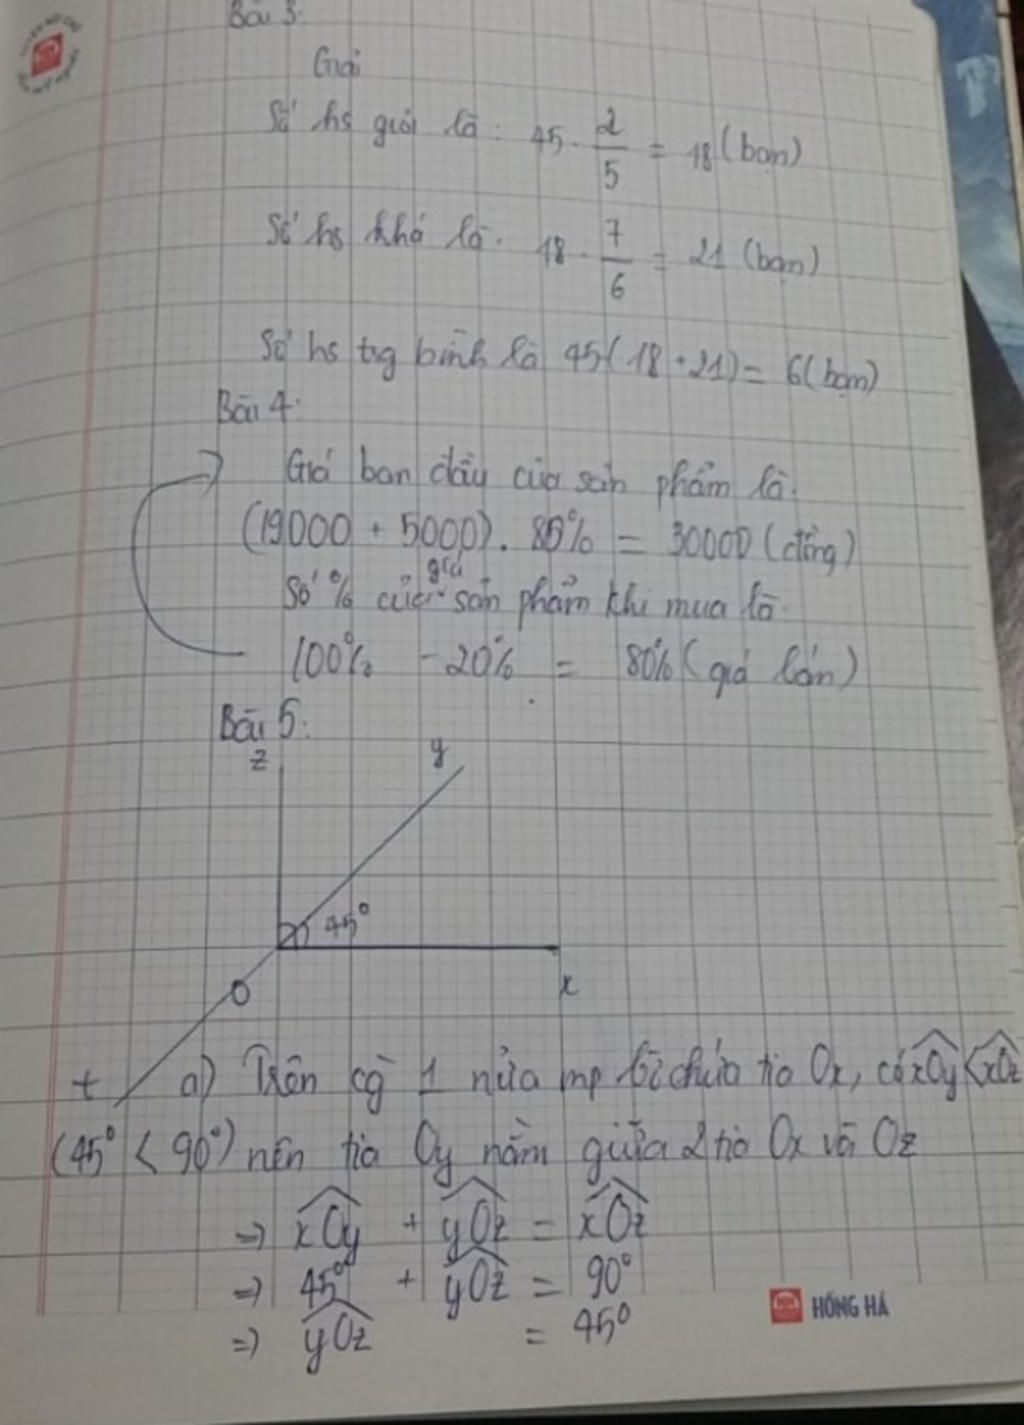 Bài 3.
Giải
Số hs giỏi là: 45 . 2/5 = 18 (bạn)
Số hs khá là. 18 . 7/6 = 21 (bạn)
Số hs trg bình là 45-(18+21)= 6(bạn)
Bài 4:
Giá ban đầu của sản phẩm là.
(19000 + 5000). 80% = 30000 (đồng)
Số % của giá sản phẩm khi mua là.
100% - 20% = 80% (giá bán)
Bài 5:
z
y
45°
x
O
t
a) Trên cg 1 nửa mp bờ chứa tia Ox, có xOy < xOz
(45° < 90°) nên tia Oy nằm giữa 2 tia Ox và Oz
=> xOy + yOz = xOz
=> 45° + yOz = 90°
=> yOz = 45°
HỒNG HÀ